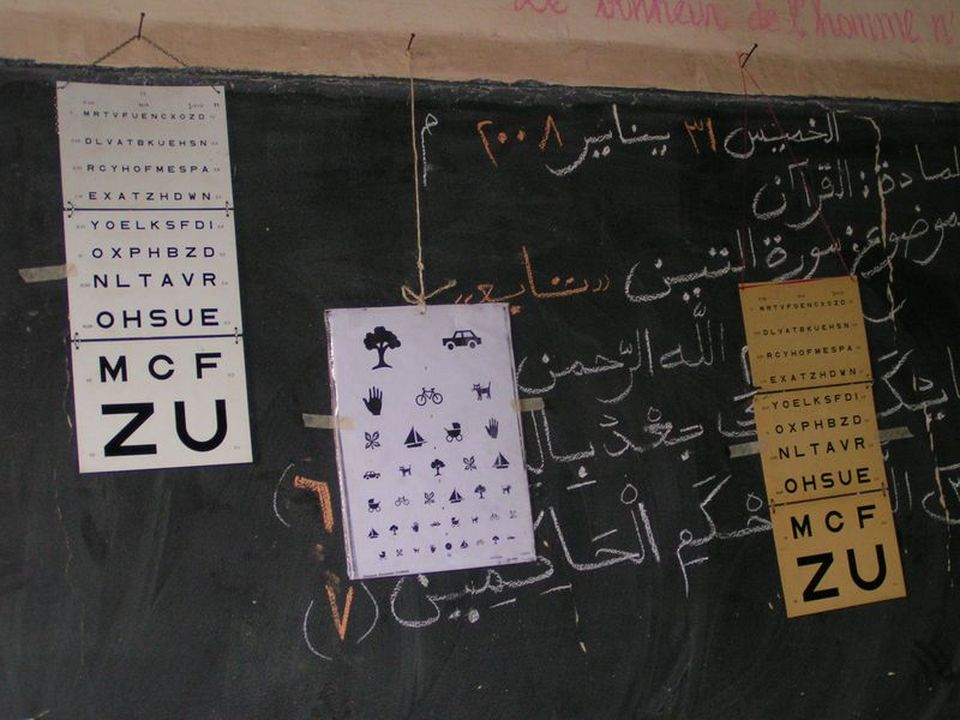 Le bonheur de l'homme n'
MRTVFUENCXOZD
DLVATBKUEHSN
RCYHOFMESPA
EXATZHDWN
YOELKSFDI
OXPHBZD
NLTAVR
OHSUE
MCF
ZU
الخميس ٣١ يناير ٢٠٠٨ م
المادة: القرآن
الموضوع: سورة التين "تتابع"
الله الرحمن
يكذبك بعد بال
(٦)
بأحكم الحاكمين
(٧)
MRTVFUENCXOZD
DLVATBKUEHSN
RCYHOFMESPA
EXATZHDWN
YOELKSFDI
OXPHBZD
NLTAVR
OHSUE
MCF
ZU